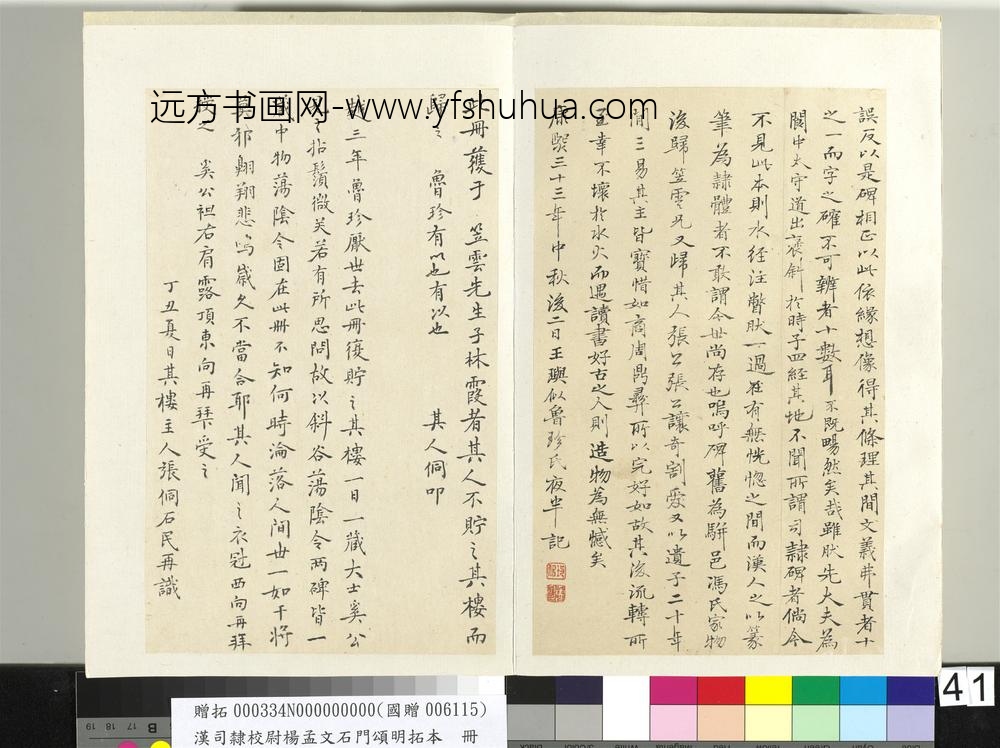 远方书画网-www.yfshuhua.com
誤反以是碑相正以此依緣想像得其條理其間文義弗貫者十
之一而字之確不可辨者十數耳不既暢然矣哉雖然先大夫為
閬中太守道出褒斜於時予四經其地不聞所謂司隸碑者倘今
不見此本則水經注瞥然一過在有無恍惚之間而漢人之以篆
筆為隸體者不敢謂今世尚存也嗚呼碑舊為駢邑馮氏家物
後歸笠雲兄又歸其人張公張公讓奇割愛又以遺予二十年
間三易其主皆寶惜如商周鼎彝所以完好如故其後流轉所
至幸不壞於水火而遇讀書好古之人則造物為無憾矣
康熙三十三年中秋後二日王璵似魯珍氏夜半記
此冊蒦于笠雲先生子林霞者其人不貯之其樓而
歸之魯珍有以也有以也
其人侗叩
越三年魯珍厭世去此冊復貯之其樓一日一藏大士奚公
見之拈鬚微笑若有所思問故以斜谷蕩陰令兩碑皆一
中物蕩陰令固在此冊不知何時淪落人間世一如干將
莫邪翱翔悲鳴歲久不當合耶其人聞之衣冠西向再拜
授之奚公袒右肩露頂東向再拜受之
丁丑夏日其樓主人張侗石民再識
41
贈拓 000334N000000000(國贈 006115)
漢司隸校尉楊孟文石門頌明拓本 冊
19 18 17 16 15
B